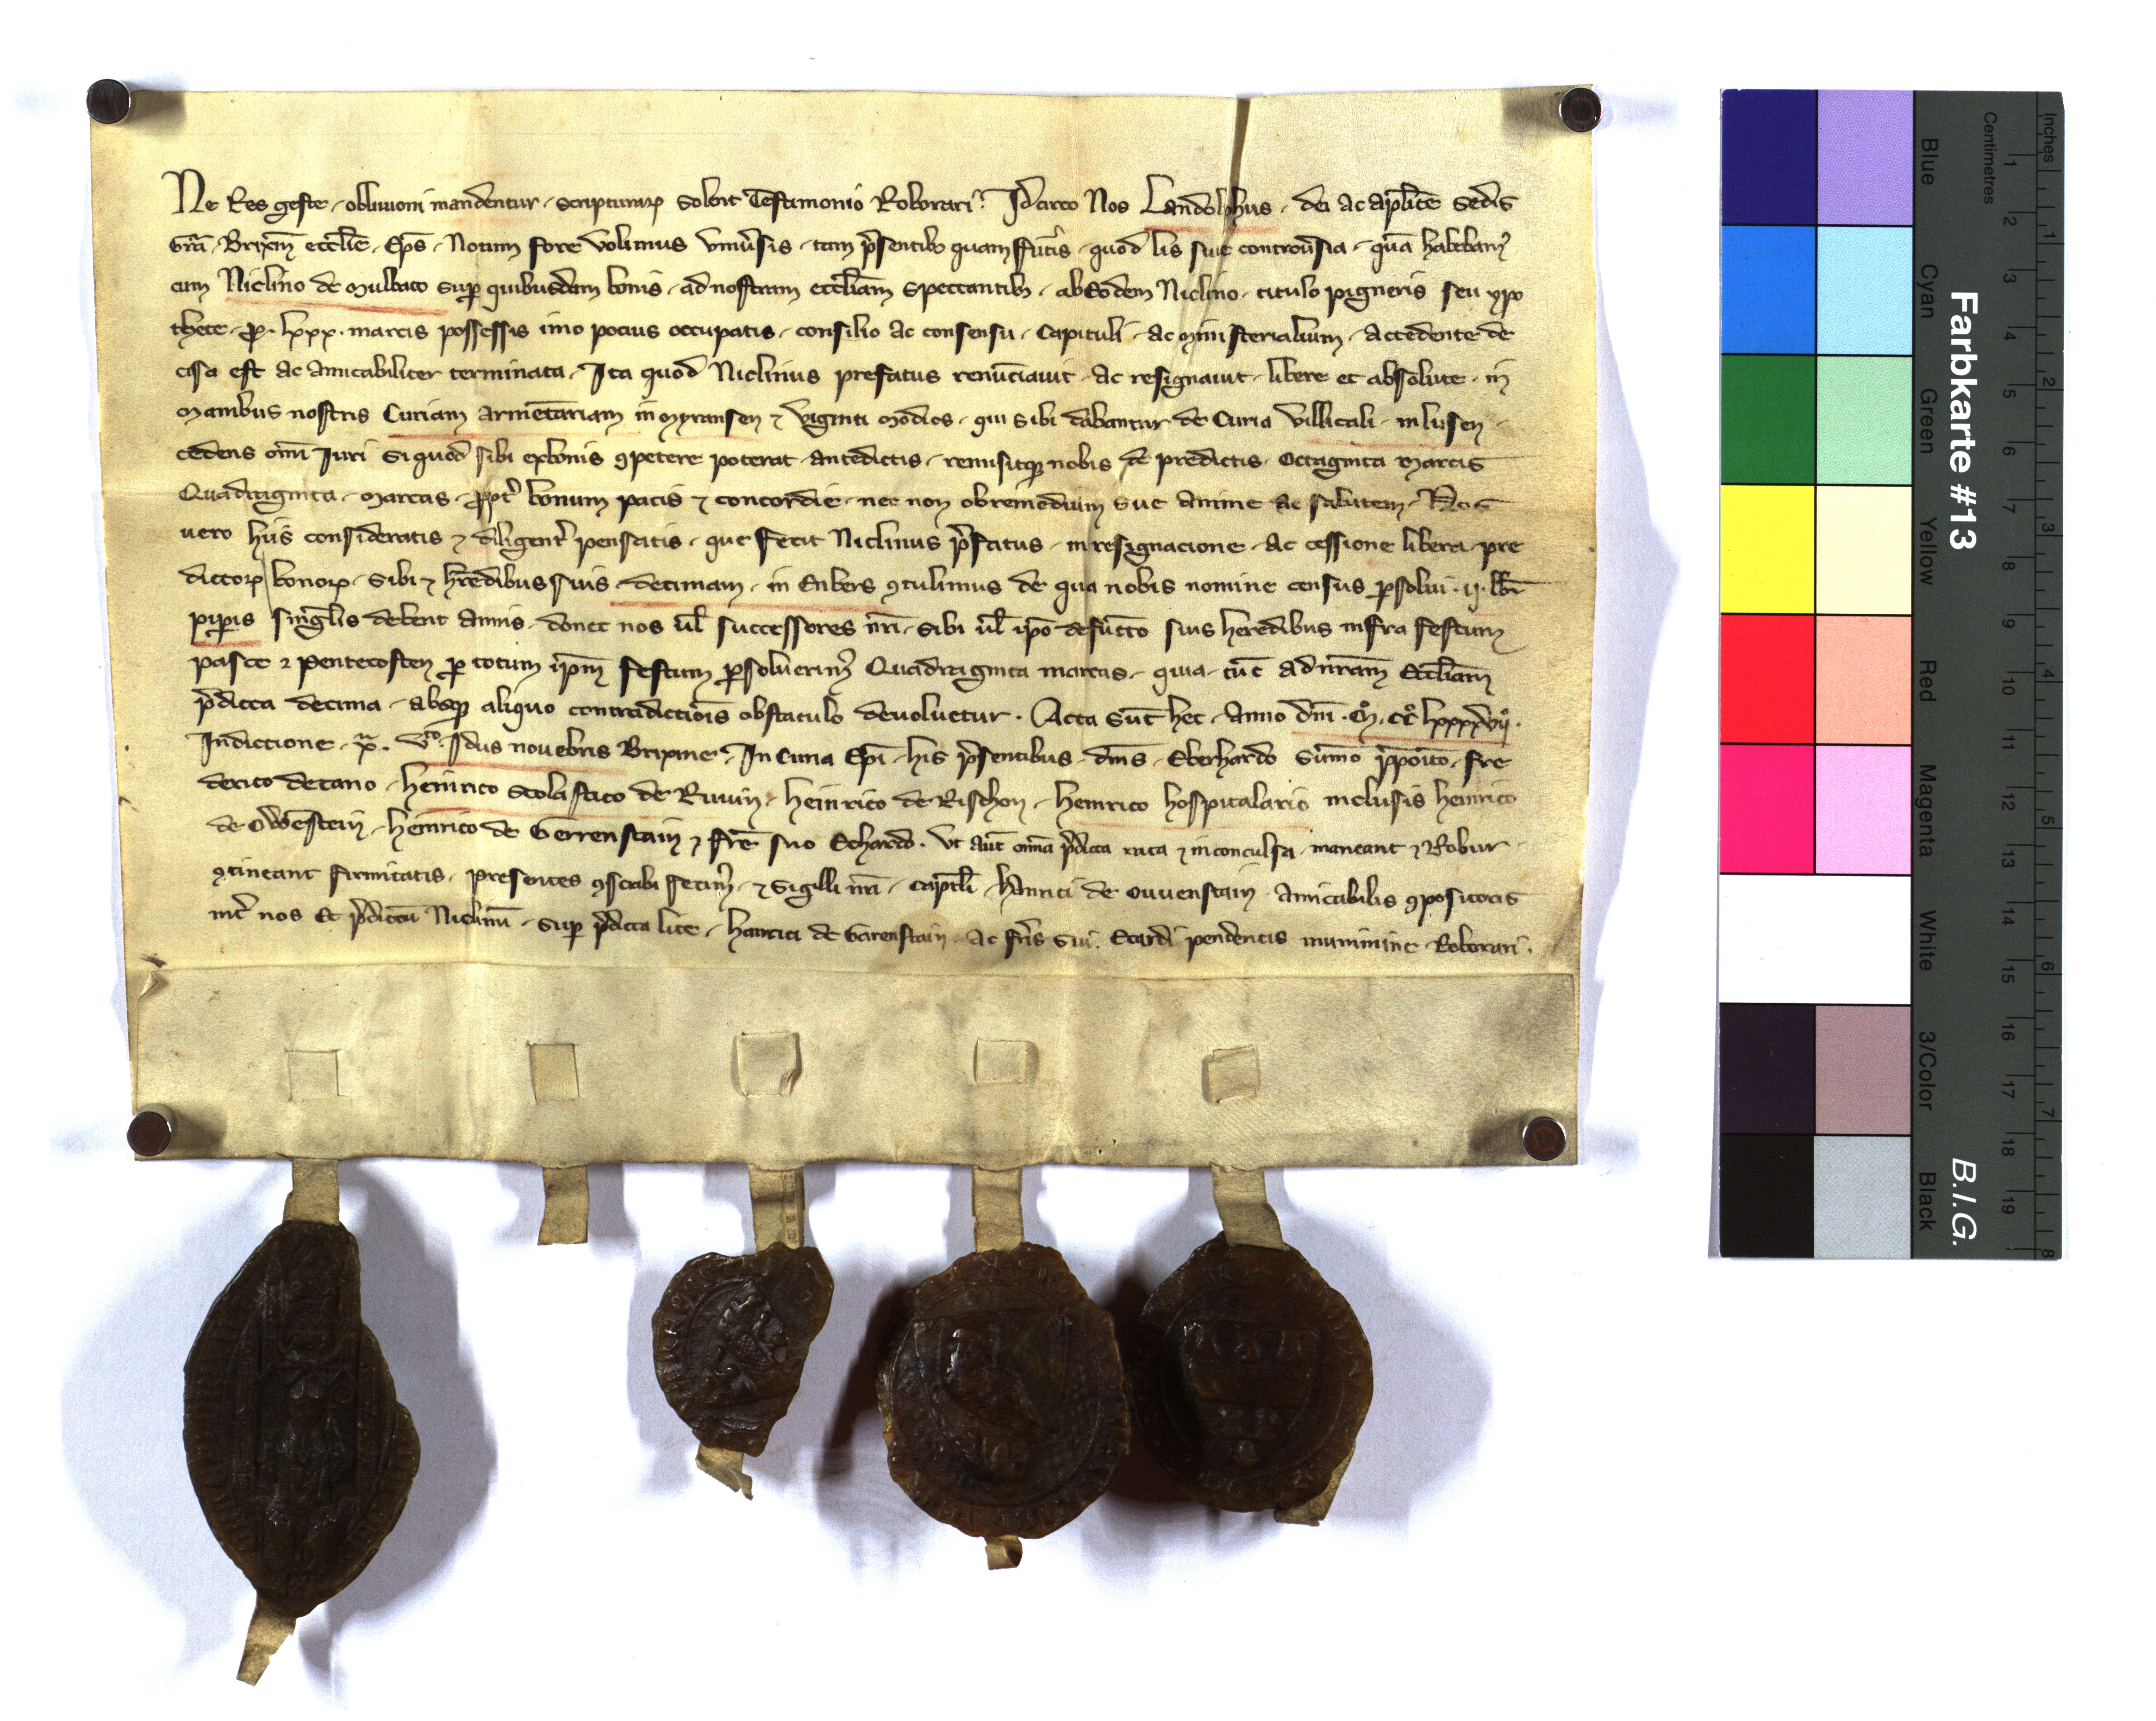 Ne Res geste, obliuioni mandentur, scripturarꝝ solent Testimonio Roborari. Idcirco Nos Landolphus, dei ac apl̅ice Sedis
Gr̅a, Brixin̅ eccl̅ie, Ep̅s, Notum fore volumus vniu̅sis, tam p̅sentibꝫ quam fut̅is, quod lis siue controu̅sia, qua̅ habebam⁹
cum Niclino de Mulbaco Suꝑ quibusdam bonis, ad nostram eccl̅iam Spectantibꝫ, ab Eodem Niclino, titulo pigneris seu ypo
thece, ꝓ. lxxx. marcis possessis imo pocius occupatis, consilio ac consensu, Capituli, ac ministerialium, accedente de
cisa est ac amicabiliter terminata, Ita quod Niclinus prefatus renu̅ciauit, ac resignauit, libere et absolute, in
manibus nostris Curiam armeta̅riam in Myransen ⁊ viginti modios, qui sibi dabantur de Curia villicali, in lusen,
cedens om̅i Iuri si quod sibi ex bonis ꝯpetere poterat antedictis, remisitqꝫ nobis de predictis Octaginta marcis
Quadraginta, marcas, ꝓpt̅ bonum pacis ⁊ concordie, nec non ob remedium sue anime ac salutem, Nos
uero hiis consideratis ⁊ diligent̅ pensatis, que fecit Niclinus p̅fatus, in resignacione, ac cessione libera, pre
dictorꝝ bonorꝝ, sibi ⁊ h̅redibus suis decimam, in Enbers ꝯtulimus de qua nobis nomine census ꝑsolui. ij. lb̅r
piꝑis singl̅is debent annis, donec nos ul̅ successores nr̅i, sibi ul̅ ip̅o defu̅cto suis heredibus infra festum
pasce ⁊ Pentecosten ꝑ totum ip̅m festum ꝑsoluerim⁹ Quadraginta marcas, quia tu̅c ad nr̅am Eccl̅iam
p̅dicta decima, absqꝫ aliquo contradictio̅is obstaculo deuoluetur. Acta su̅t hec, Anno dn̅i. M̊. CC̊. lxxxxvij̊.
Indictione. xͣ. vᵗᵒ. Idus nouebris Brixine, In Curia Ep̅i, his p̅sentibus, dn̅s, Eberhardo Su̅mo p̅poi̅to, fre
derico decano, heinrico Scolastico de Ruuin, heinrico de Rischon, heinrico hospitalario in clusis heinrico
de Owenstein, heinrico de Gerrenstain ⁊ fr̅e suo Echardo. Vt au̅t om̅ia p̅dicta rata ⁊ inconculsa maneant ⁊ Robur
ꝯtineant firmitatis, presentes ꝯscribi fecim⁹, ⁊ Sigilli nr̅i, capt̅li, hainrici de Ouuenstain Amicabilis ꝯpositoris
int̅ nos Et p̅dictu̅ Niclinu̅, Suꝑ p̅dicta lite, hainrici de Garenstain ac fr̅is Sui. Ecardi pendentis munimine Roborari.
Farbkarte #13
B.I.G.
Blue
Cyan
Green
Yellow
Red
Magenta
White
3/Color
Black
Centimetres
1 2 3 4 5 6 7 8 9 10 11 12 13 14 15 16 17 18 19
Inches
1 2 3 4 5 6 7 8